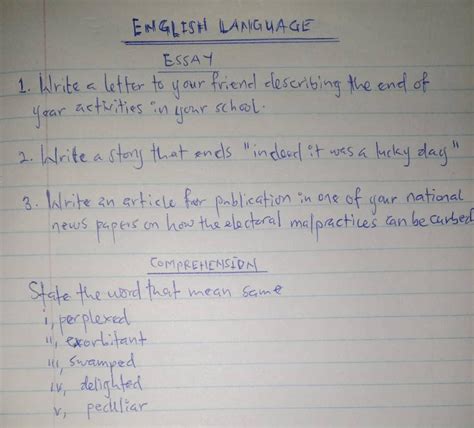 ENGLISH LANGUAGE
ESSAY
1. Write a letter to your friend describing the end of
year activities in your school.
2. Write a story that ends "indeed it was a lucky day"
3. Write an article for publication in one of your national
news papers on how the electoral malpractices can be curbed
COMPREHENSION
State the word that mean same
i, perplexed
ii, exorbitant
iii, swamped
iv, delighted
v, peculiar